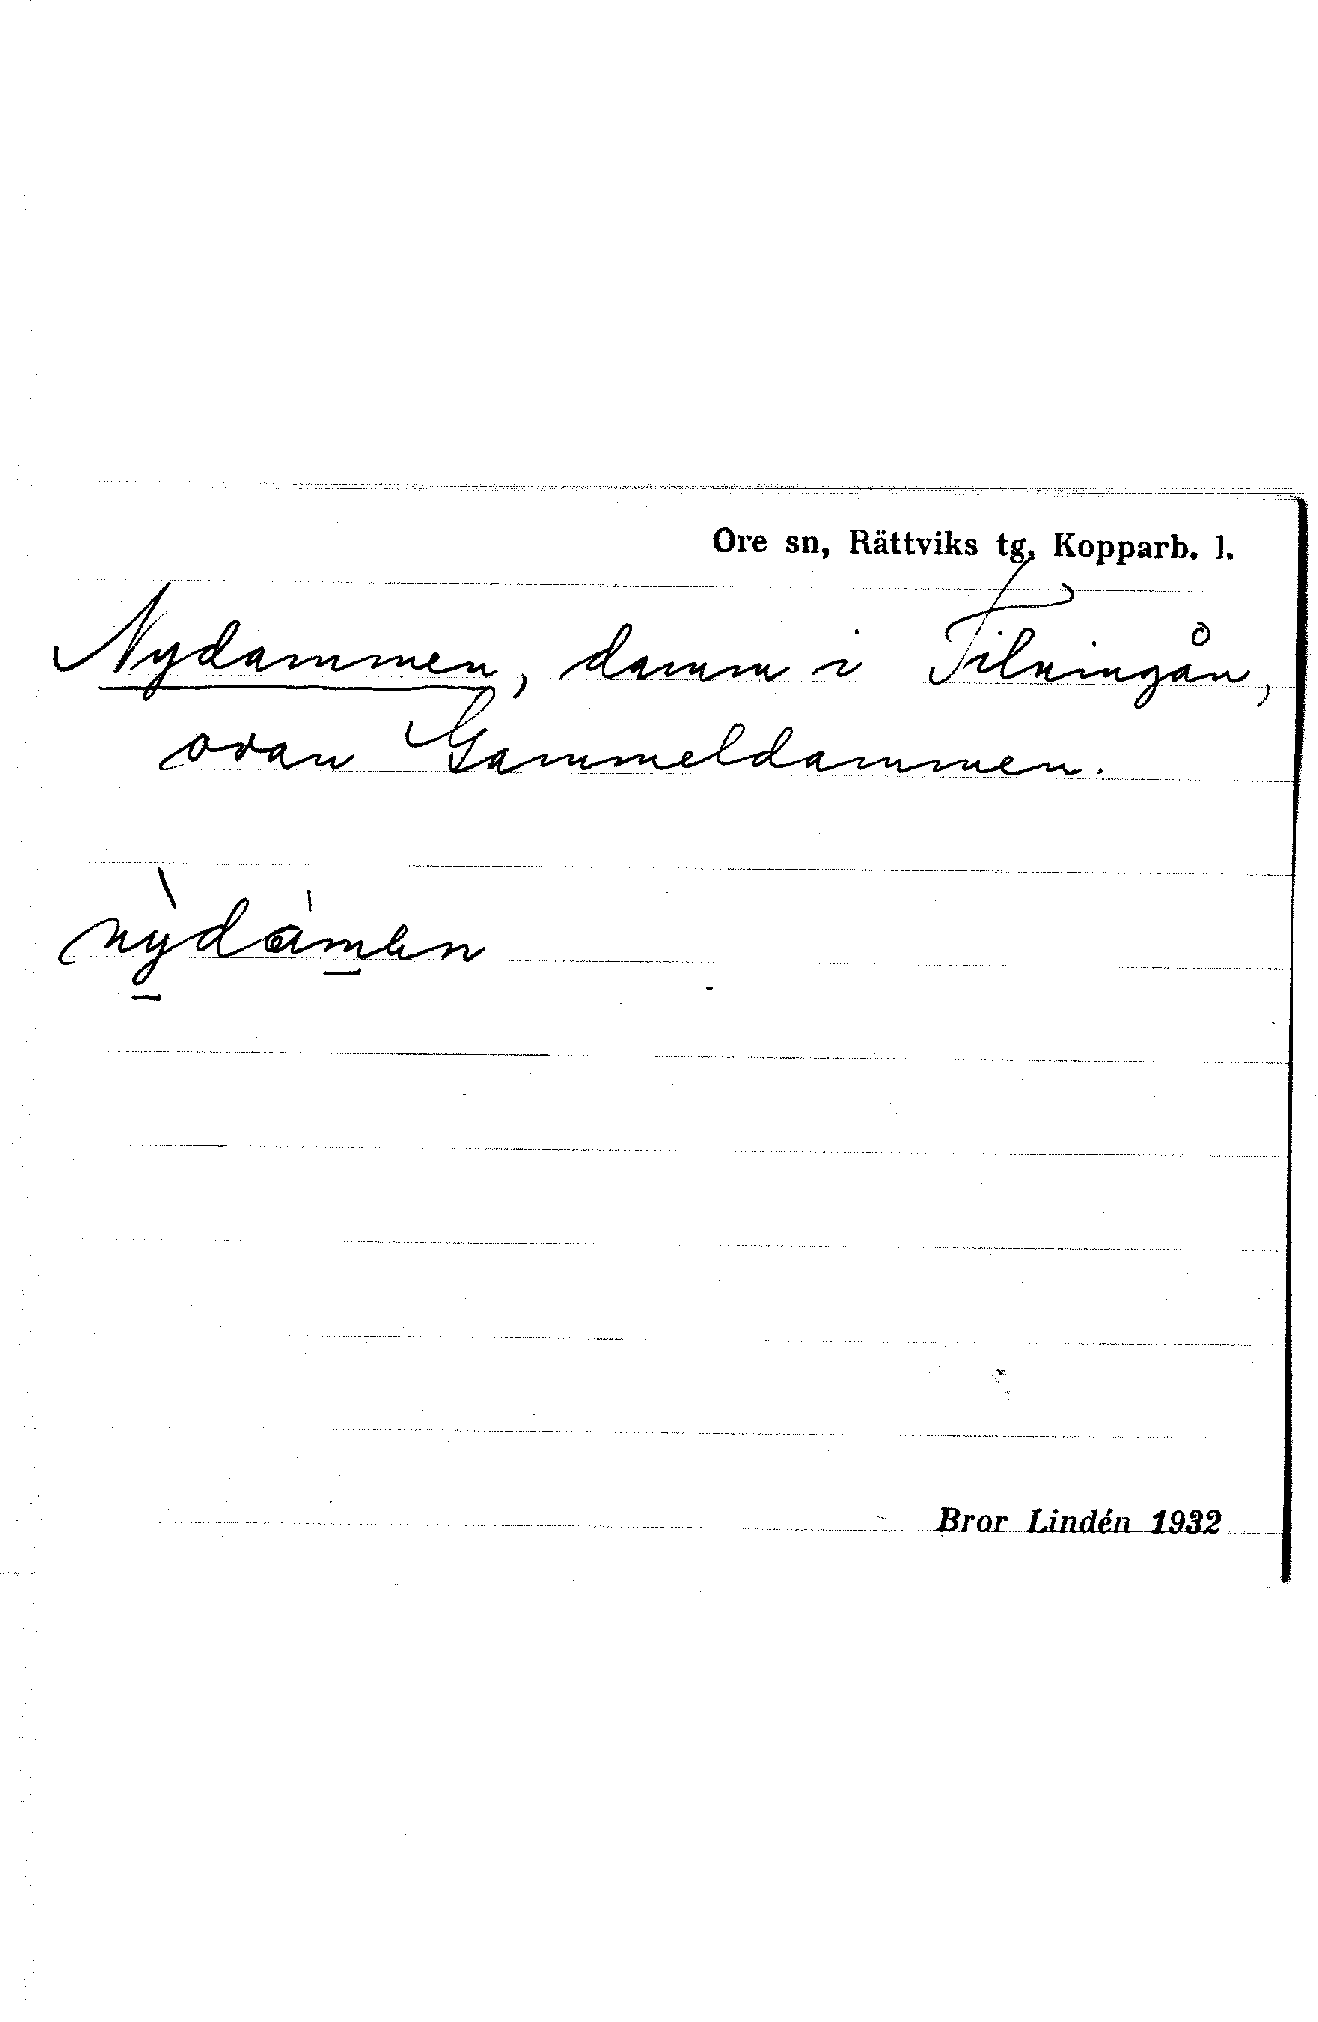 Ore sn, Rättviks tg, Kopparb. l.
Nydammen, damm i Filningån,
ovan Gammeldammen.
nỳdámen
Bror Lindén 1932